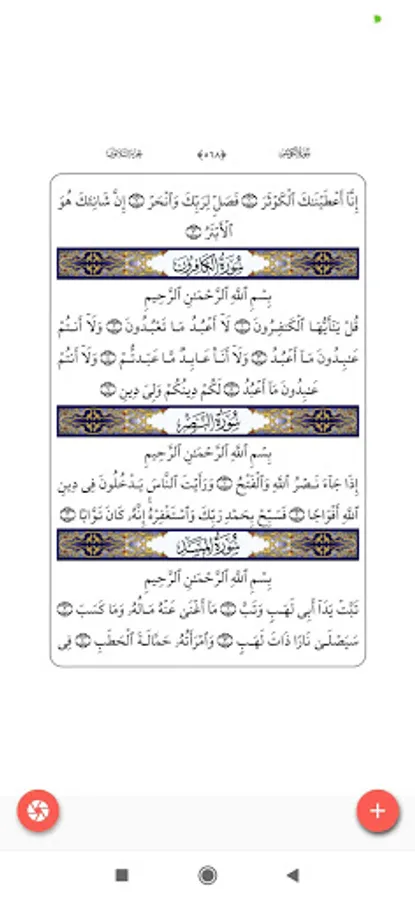 سورة الكوثر ﴿٥٦٨﴾ الجزء الثلاثون
إِنَّا أَعْطَيْنَـٰكَ ٱلْكَوْثَرَ ۝ فَصَلِّ لِرَبِّكَ وَٱنْحَرْ ۝ إِنَّ شَانِئَكَ هُوَ
ٱلْأَبْتَرُ ۝
سُورَةُ الكَافِرُونَ
بِسْمِ ٱللَّهِ ٱلرَّحْمَـٰنِ ٱلرَّحِيمِ
قُلْ يَـٰٓأَيُّهَا ٱلْكَـٰفِرُونَ ۝ لَآ أَعْبُدُ مَا تَعْبُدُونَ ۝ وَلَآ أَنتُمْ
عَـٰبِدُونَ مَآ أَعْبُدُ ۝ وَلَآ أَنَا۠ عَابِدٌ مَّا عَبَدتُّمْ ۝ وَلَآ أَنتُمْ
عَـٰبِدُونَ مَآ أَعْبُدُ ۝ لَكُمْ دِينُكُمْ وَلِىَ دِينِ ۝
سُورَةُ النَّصْرِ
بِسْمِ ٱللَّهِ ٱلرَّحْمَـٰنِ ٱلرَّحِيمِ
إِذَا جَآءَ نَصْرُ ٱللَّهِ وَٱلْفَتْحُ ۝ وَرَأَيْتَ ٱلنَّاسَ يَدْخُلُونَ فِى دِينِ
ٱللَّهِ أَفْوَاجًا ۝ فَسَبِّحْ بِحَمْدِ رَبِّكَ وَٱسْتَغْفِرْهُ ۚ إِنَّهُۥ كَانَ تَوَّابًۢا ۝
سُورَةُ المَسَدِ
بِسْمِ ٱللَّهِ ٱلرَّحْمَـٰنِ ٱلرَّحِيمِ
تَبَّتْ يَدَآ أَبِى لَهَبٍ وَتَبَّ ۝ مَآ أَغْنَىٰ عَنْهُ مَالُهُۥ وَمَا كَسَبَ ۝
سَيَصْلَىٰ نَارًا ذَاتَ لَهَبٍ ۝ وَٱمْرَأَتُهُۥ حَمَّالَةَ ٱلْحَطَبِ ۝ فِى